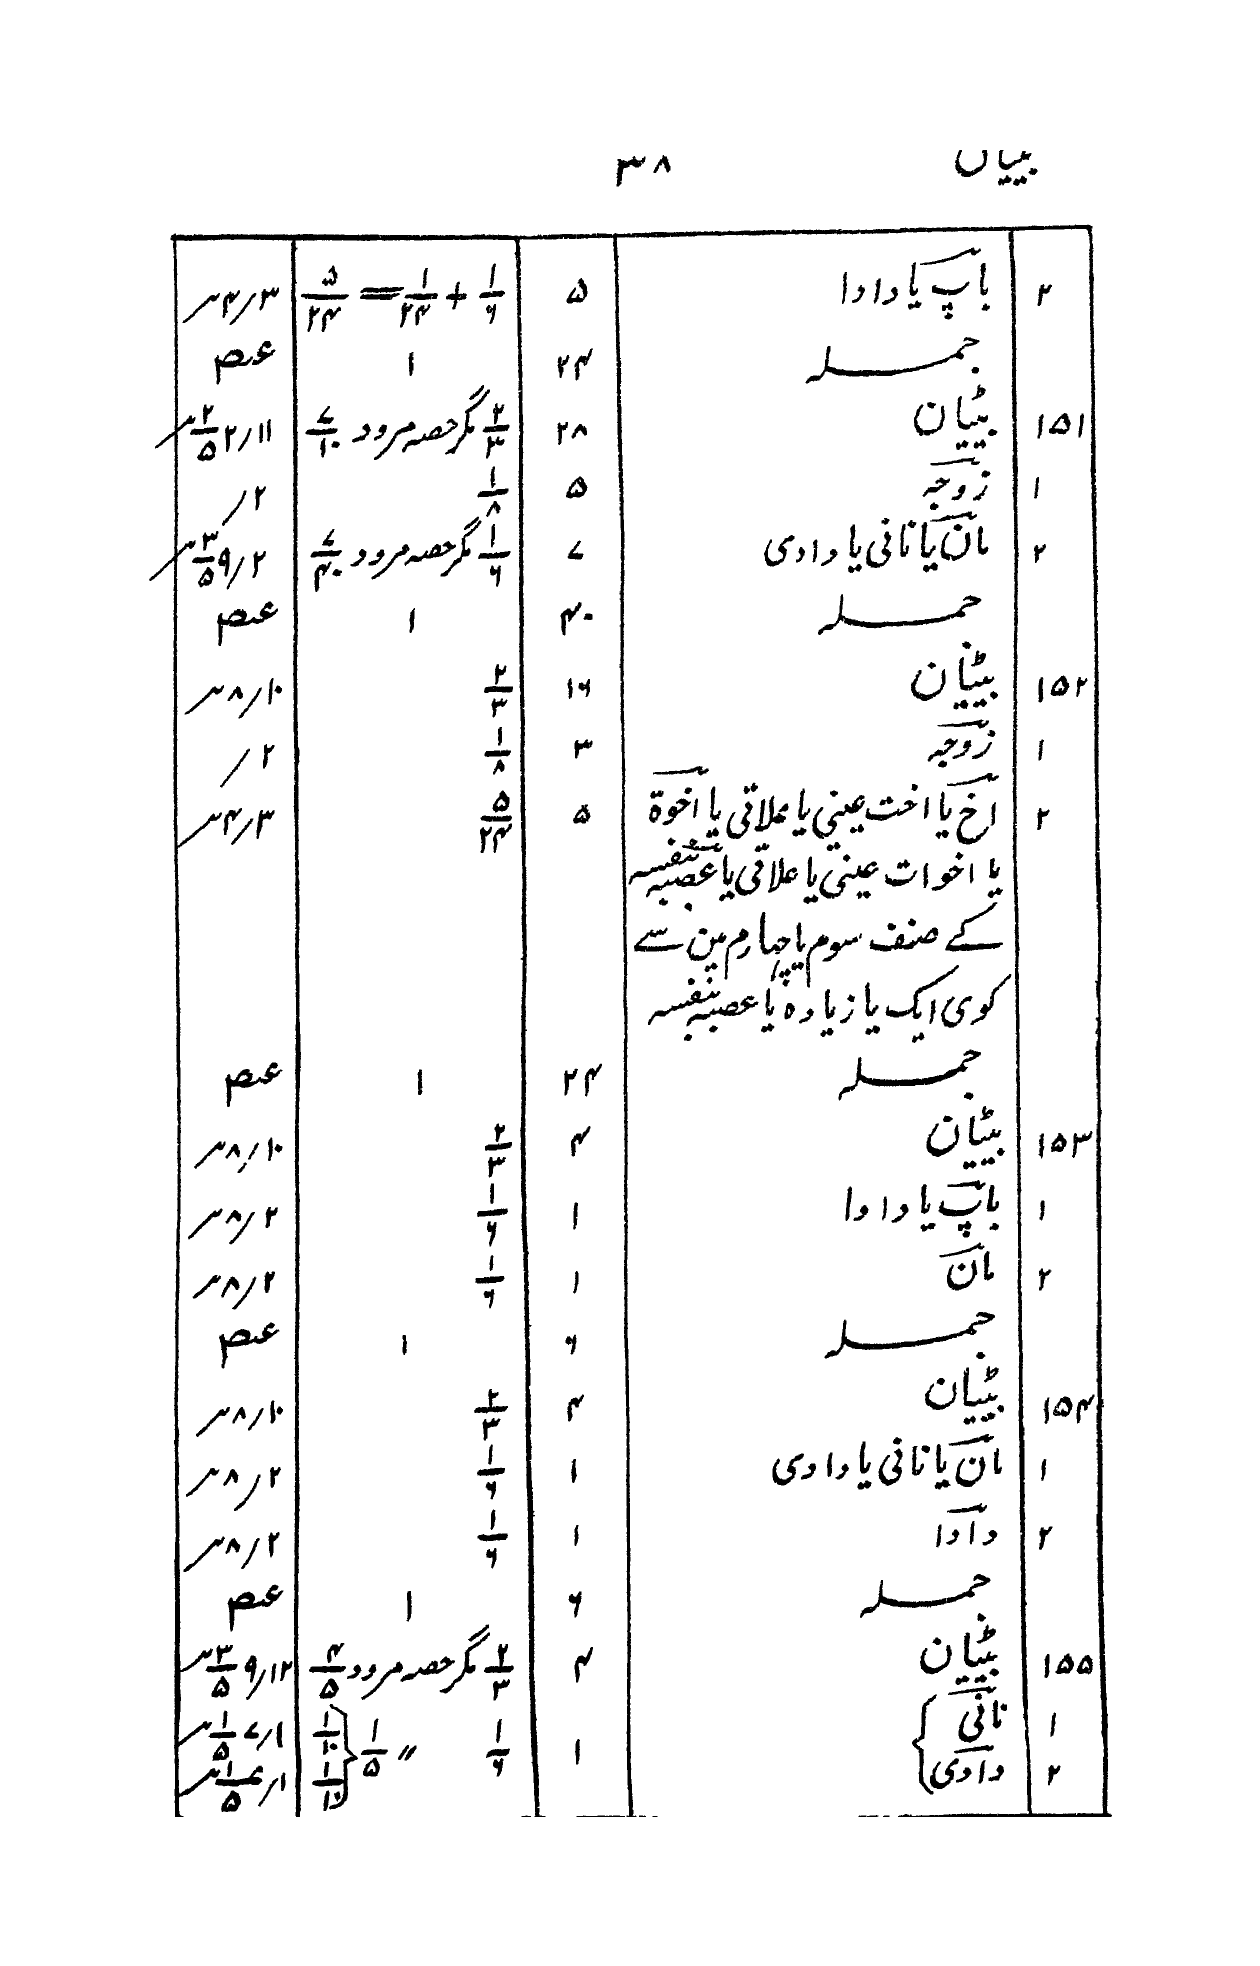 بیٹیاں ۳۸
۲ باپ یا دادا ۵ ۱/۶ + ۱/۲۴ = ۵/۲۴ ۳/۴
جملہ ۲۴ ۱ عہ
۱۵۱ بیٹیان ۲۸ ۲/۳ مگر حصہ مردود ۷/۱۰ ۱۱/۲ ۲/۵
۱ زوجہ ۵ ۱/۸ ۲/
۲ مان یا نانی یا دادی ۷ ۱/۶ مگر حصہ مردود ۷/۴۰ ۲/۹ ۳/۵
جملہ ۴۰ ۱ عہ
۱۵۲ بیٹیان ۱۶ ۲/۳ ۱۰/۸
۱ زوجہ ۳ ۱/۸ ۲/
۲ اخ یا اخت عینی یا علاتی یا اخوة ۵ ۵/۲۴ ۳/۴
یا اخوات عینی یا علاقی یا عصبہ بنفسہ
کے صنف سوم یا چہارم مین سے
کوی ایک یا زیادہ یا عصبہ بنفسہ
جملہ ۲۴ ۱ عہ
۱۵۳ بیٹیان ۴ ۲/۳ ۱۰/۸
۱ باپ یا دادا ۱ ۱/۶ ۲/۸
۲ مان ۱ ۱/۶ ۲/۸
جملہ ۶ ۱ عہ
۱۵۴ بیٹیان ۴ ۲/۳ ۱۰/۸
۱ مان یا نانی یا دادی ۱ ۱/۶ ۲/۸
۲ دادا ۱ ۱/۶ ۲/۸
جملہ ۶ ۱ عہ
۱۵۵ بیٹیان ۴ ۲/۳ مگر حصہ مردود ۴/۵ ۱۲/۹ ۳/۵
۱ نانی ۱ ۱/۶ 〃 ۱/۵ ۱/۱۰ ۱/۷ ۱/۵
۲ دادی ۱/۱۰ ۱/۷ ۱/۵